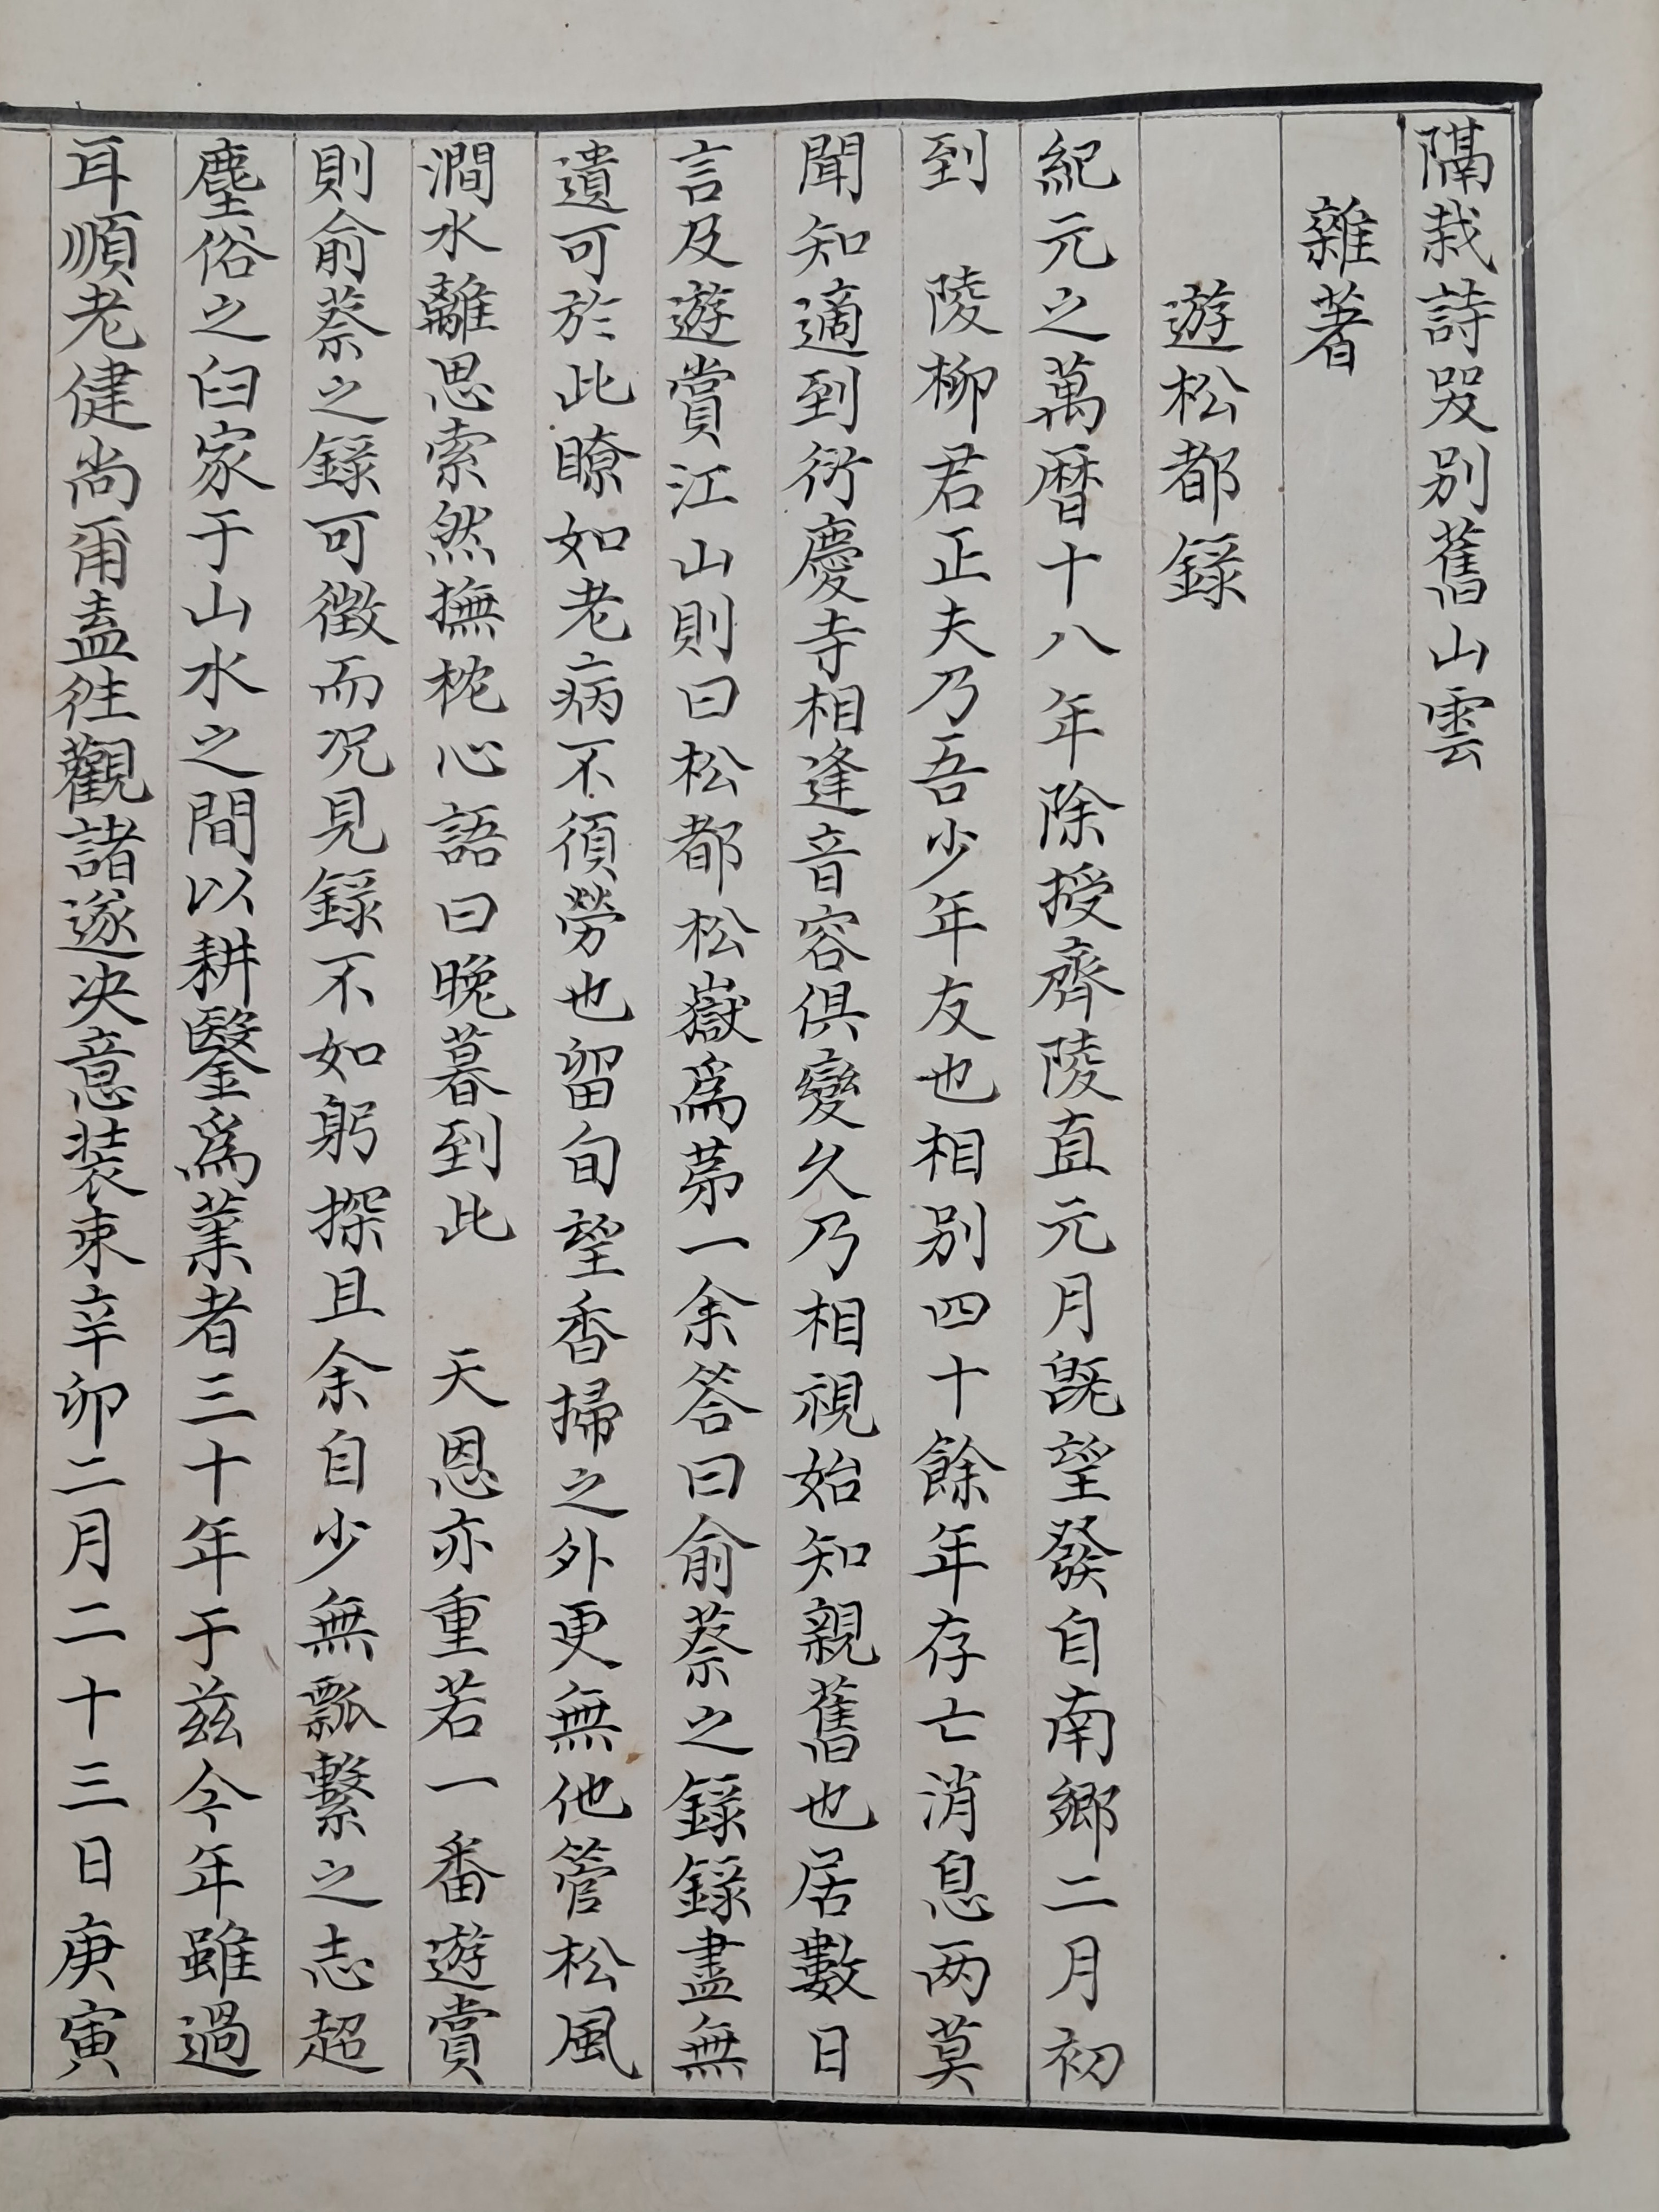 隔栽詩哭別舊山雲
雜著
遊松都錄
紀元之萬曆十八年除授齊陵直元月旣望發自南鄕二月初
到 陵柳君正夫乃吾少年友也相別四十餘年存亡消息两莫
聞知適到衍慶寺相逢音容俱變久乃相視始知親舊也居數日
言及遊賞江山則曰松都松嶽爲苐一余答曰俞蔡之錄錄盡無
遺可於此瞭如老病不須勞也留旬望香掃之外更無他管松風
澗水離思索然撫枕心語曰晚暮到此 天恩亦重若一番遊賞
則俞蔡之錄可徵而况見錄不如躬探且余自少無瓢繫之志超
塵俗之臼家于山水之間以耕鑿爲業者三十年于玆今年雖過
耳順老健尚甭盍徃觀諸遂决意装束辛卯二月二十三日庚寅